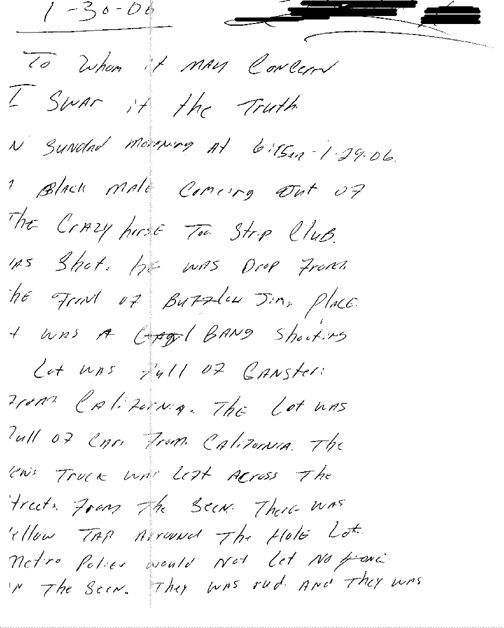 1-30-06
To Whom it MAY Concern
I SWAr it the Truth
N SUNDAD MORNING At 6:15am-1-29-06.
BlAck MALE Comeing Out OF
THE CrAzy horse Too Strip Club.
AS Shot. he WAS Drop From
he Front OF BUFFLow Jims PLACE.
t WAS A BANG Shooting
Lot WAS Full OF GANster:
From CALiforniA. THE Lot WAS
Full OF CArs From CALiforniA. The
TrucK WAS LEFT AcRoss The
treets From The SEEN. There WAS
ellow TAP Arround The HoLE Lot.
metro PoLice would Not Let No
N THE SEEN. They WAS rud. AND They WAS